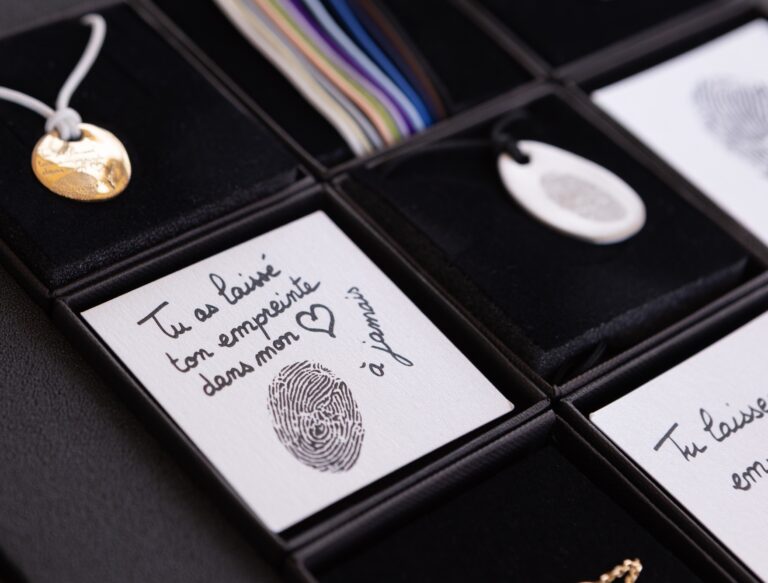 Tu as laissé
ton empreinte
dans mon ♡
à jamais
Tu laisse
emp